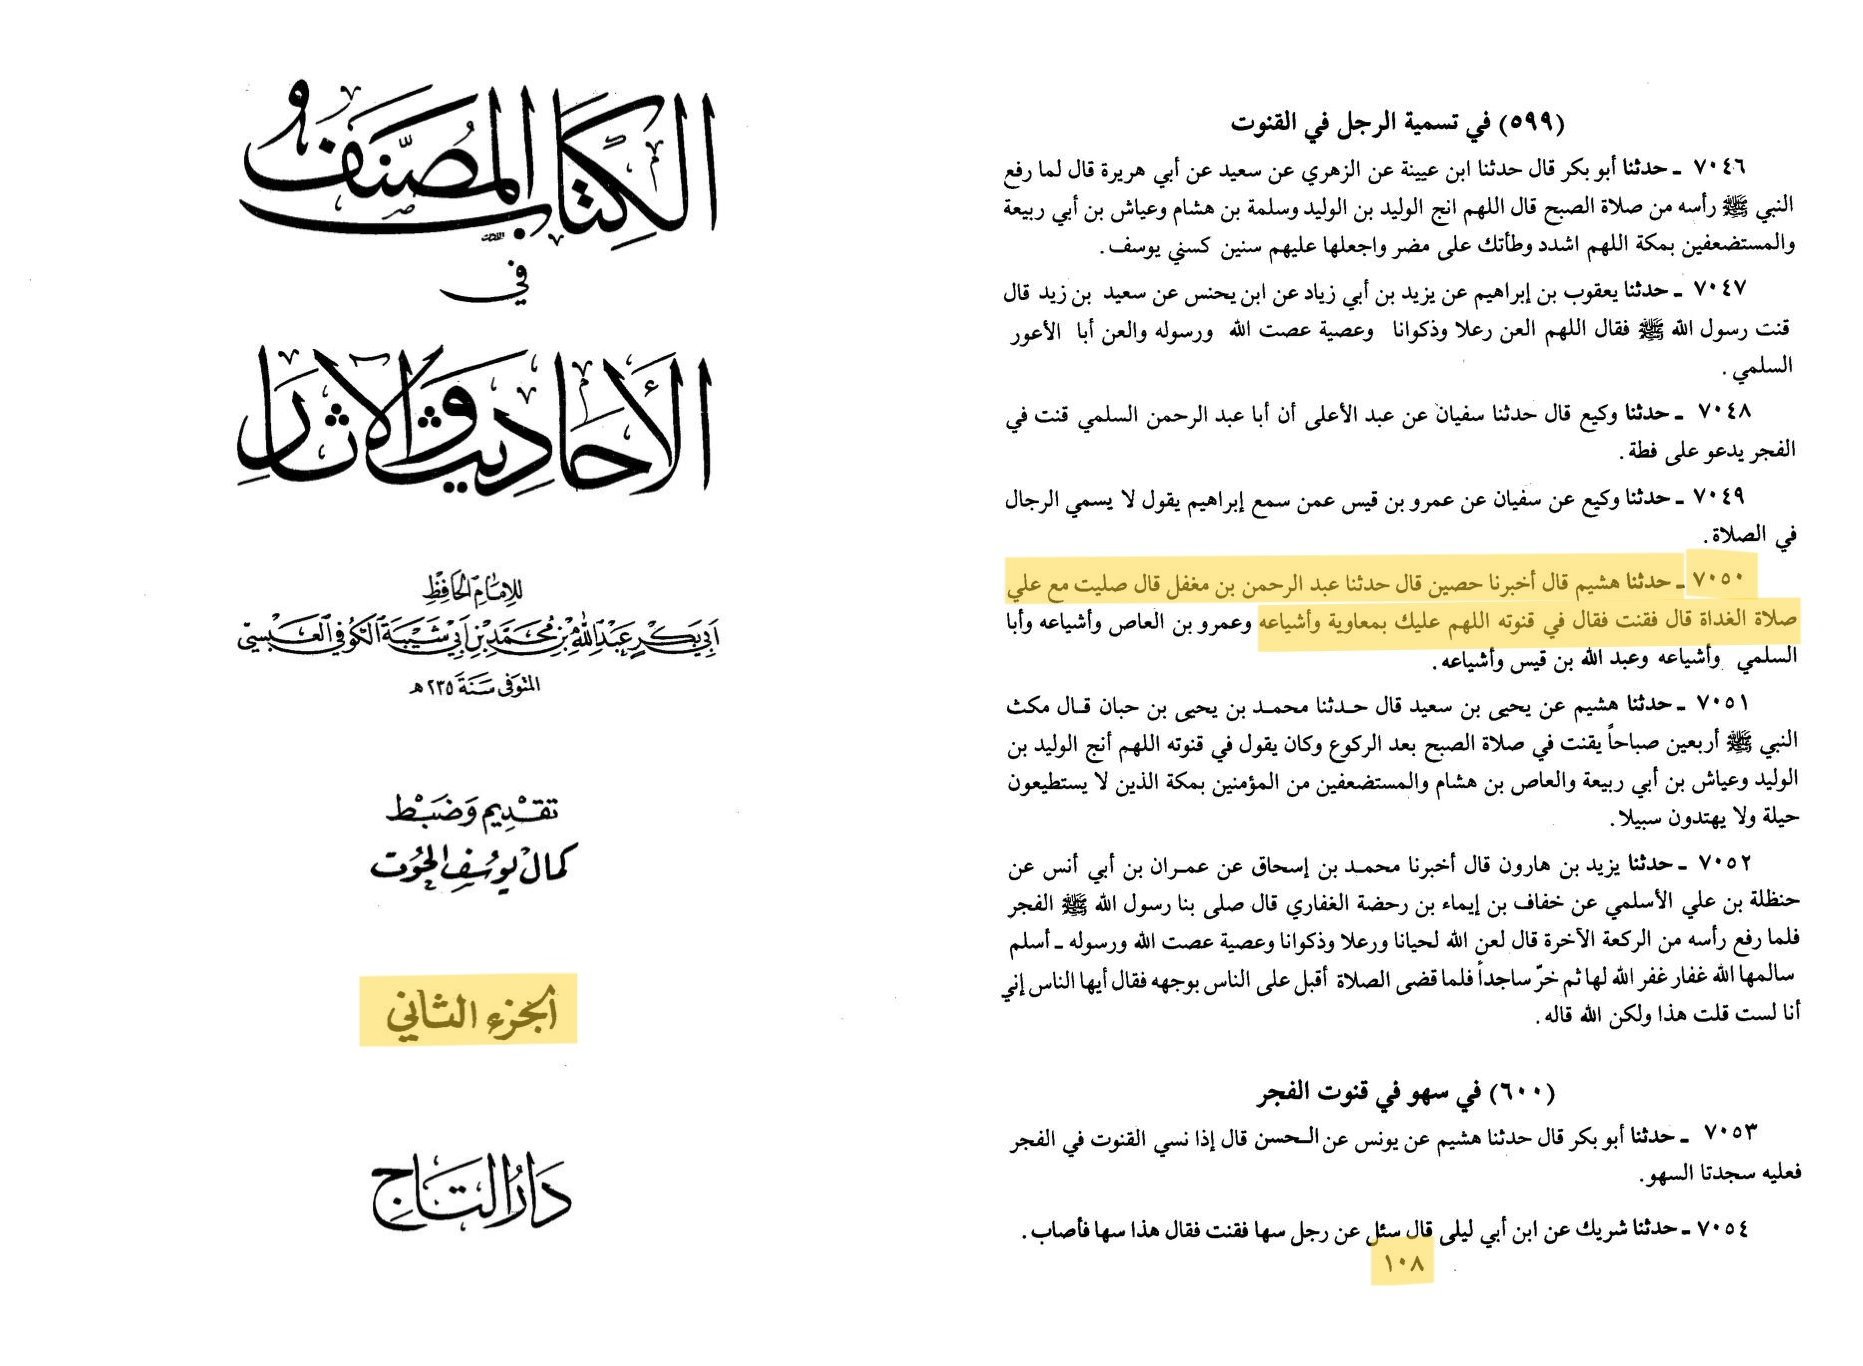 (٥٩٩) في تسمية الرجل في القنوت
٧٠٤٦ ـ حدثنا أبو بكر قال حدثنا ابن عيينة عن الزهري عن سعيد عن أبي هريرة قال لما رفع
النبي ﷺ رأسه من صلاة الصبح قال اللهم انج الوليد بن الوليد وسلمة بن هشام وعياش بن أبي ربيعة
والمستضعفين بمكة اللهم اشدد وطأتك على مضر واجعلها عليهم سنين كسني يوسف.
٧٠٤٧ ـ حدثنا يعقوب بن إبراهيم عن يزيد بن أبي زياد عن ابن يحنس عن سعيد بن زيد قال
قنت رسول الله ﷺ فقال اللهم العن رعلا وذكوانا وعصية عصت الله ورسوله والعن أبا الأعور
السلمي.
٧٠٤٨ ـ حدثنا وكيع قال حدثنا سفيان عن عبد الأعلى أن أبا عبد الرحمن السلمي قنت في
الفجر يدعو على فطة.
٧٠٤٩ ـ حدثنا وكيع عن سفيان عن عمرو بن قيس عمن سمع إبراهيم يقول لا يسمي الرجال
في الصلاة.
٧٠٥٠ ـ حدثنا هشيم قال أخبرنا حصين قال حدثنا عبد الرحمن بن مغفل قال صليت مع علي
صلاة الغداة قال فقنت فقال في قنوته اللهم عليك بمعاوية وأشياعه وعمرو بن العاص وأشياعه وأبا
السلمي وأشياعه وعبد الله بن قيس وأشياعه.
٧٠٥١ ـ حدثنا هشيم عن يحيى بن سعيد قال حدثنا محمد بن يحيى بن حبان قال مكث
النبي ﷺ أربعين صباحاً يقنت في صلاة الصبح بعد الركوع وكان يقول في قنوته اللهم أنج الوليد بن
الوليد وعياش بن أبي ربيعة والعاص بن هشام والمستضعفين من المؤمنين بمكة الذين لا يستطيعون
حيلة ولا يهتدون سبيلا.
٧٠٥٢ ـ حدثنا يزيد بن هارون قال أخبرنا محمد بن إسحاق عن عمران بن أبي أنس عن
حنظلة بن علي الأسلمي عن خفاف بن إيماء بن رحضة الغفاري قال صلى بنا رسول الله ﷺ الفجر
فلما رفع رأسه من الركعة الآخرة قال لعن الله لحيانا ورعلا وذكوانا وعصية عصت الله ورسوله ـ أسلم
سالمها الله غفار غفر الله لها ثم خرّ ساجداً فلما قضى الصلاة أقبل على الناس بوجهه فقال أيها الناس إني
أنا لست قلت هذا ولكن الله قاله.
(٦٠٠) في سهو في قنوت الفجر
٧٠٥٣ ـ حدثنا أبو بكر قال حدثنا هشيم عن يونس عن الحسن قال إذا نسي القنوت في الفجر
فعليه سجدتا السهو.
٧٠٥٤ ـ حدثنا شريك عن ابن أبي ليلى قال سئل عن رجل سها فقنت فقال هذا سها فأصاب.
١٠٨
الكِتَابُ المُصَنَّفُ
في
الأَحَادِيثِ وَالآثَارِ
لِلإمَامِ الحَافِظِ
أبي بَكْرٍ عَبْدِ اللهِ بْنِ مُحَمَّدِ بْنِ أَبِي شَيْبَةَ الكُوفِيِّ العَبْسِيِّ
المتوفى سَنَة ٢٣٥ هـ
تقْدِيم وَضَبْط
كمال يُوسُف الحُوت
الجزء الثاني
دَارُ التَّاج